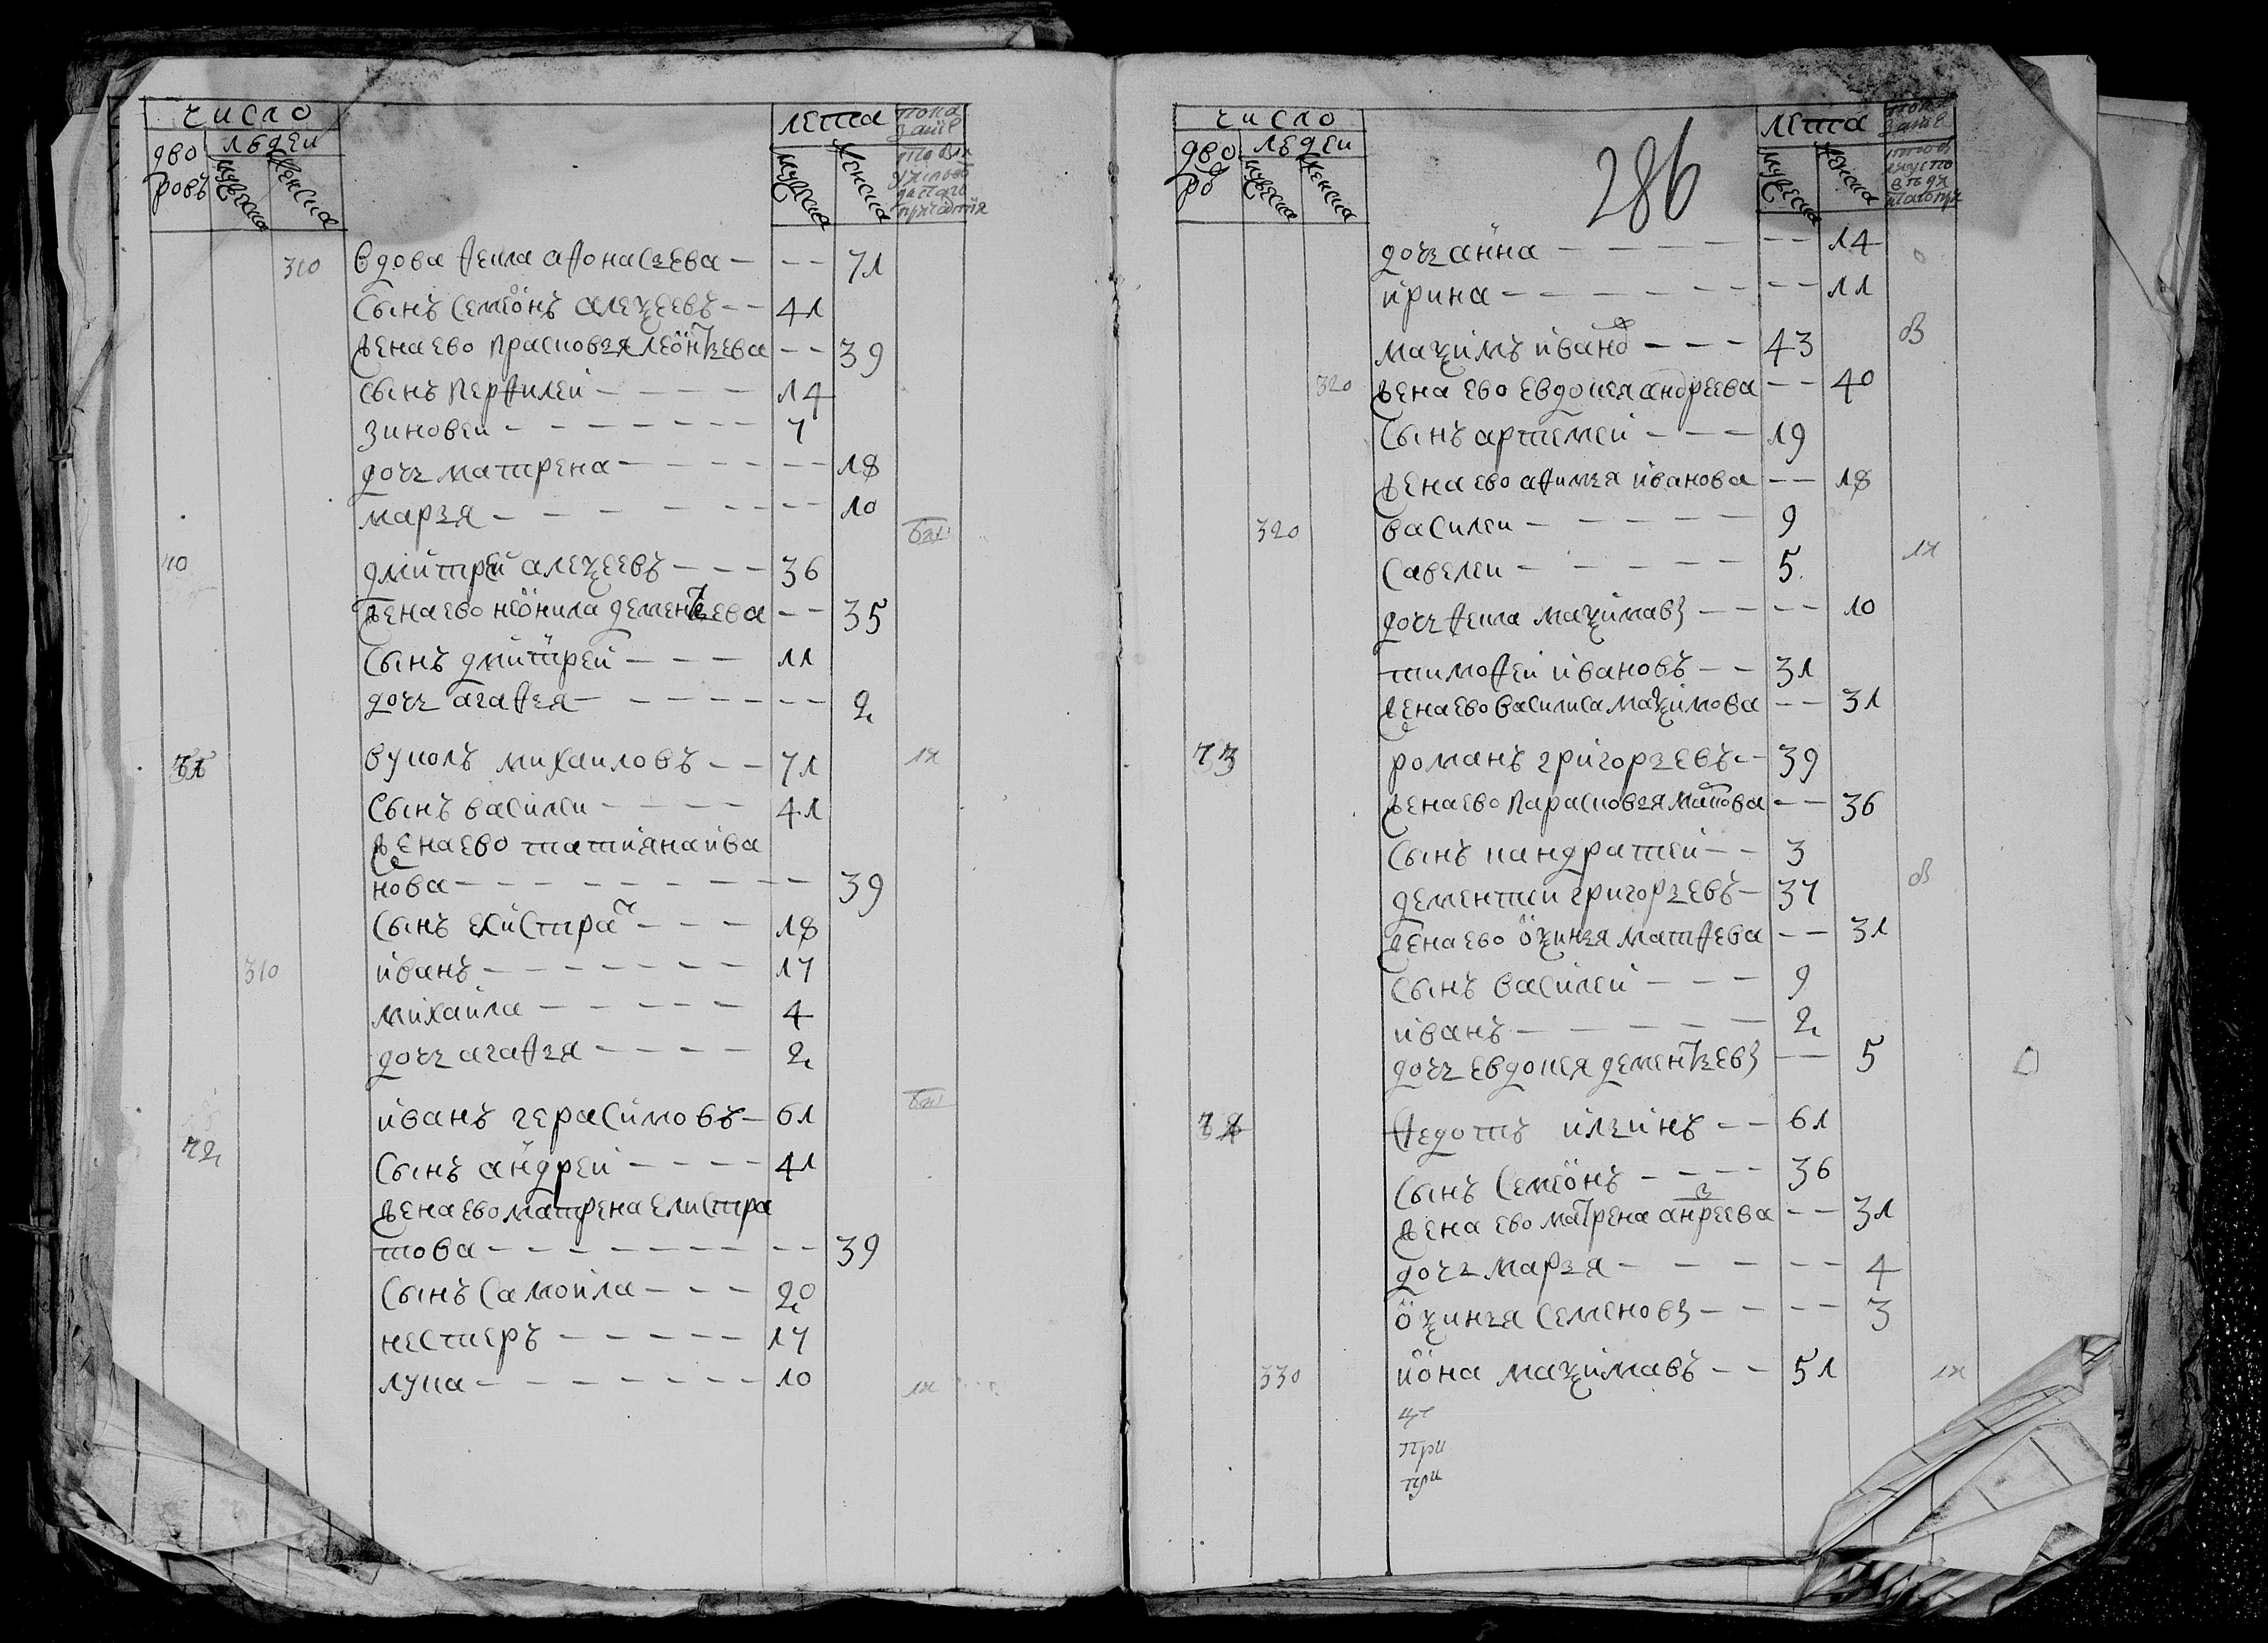 число
людеи
дво
ровъ
мужска
женска
лета
мужска
женска
пока
заніе
310 вдова фекла афонасьева - - - 71
сынъ семіонъ алеѯеевъ - - 41
жена ево прасковья леонтьева - - 39
сынъ перфилеи - - - - - 14
зиновеи - - - - - - - 7
дочь матрена - - - - - - - 18
марья - - - - - - - - 10
70 дмитреи алеѯеевъ - - - 36
жена ево неонила дементьева - - 35
сынъ дмитреи - - - - 11
дочь агафья - - - - - - - - 2
71 вуколъ михаиловъ - - 71
сынъ василеи - - - - 41
жена ево татияна ива
нова - - - - - - - - - 39
сынъ елистратъ - - - 18
310 иванъ - - - - - - - 17
михаила - - - - - 4
дочь агафья - - - - 2
72 иванъ герасимовъ - 61
сынъ андреи - - - - 41
жена ево матрена елистра
това - - - - - - - - - 39
сынъ самоила - - - 20
нестеръ - - - - - 17
лука - - - - - - - - 10
число
людеи
дво
ро
мужска
женска
286
лета
мужска
женска
дочь анна - - - - - - - - 14
ирина - - - - - - - - - 11
маѯимъ ивановъ - - - 43
320 жена ево евдокея андреева - - 40
сынъ артемеи - - - 19
жена ево афимья иванова - - 18
320 василеи - - - - - 9
савелеи - - - - - 5
дочь фекла маѯимавъ - - - - 10
тимофеи ивановъ - - 31
жена ево василиса маѯимова - - 31
73 романъ григорьевъ - - 39
жена ево парасковья макова - - 36
сынъ кандратеи - - 3
дементеи григорьевъ - 37
жена ево оѯинья матфева - - 31
сынъ василеи - - - 9
иванъ - - - - - 2
дочь евдокея дементьевъ - - 5
74 федотъ ильинъ - - 61
сынъ семіонъ - - - - 36
жена ево матрена андреева - - 31
дочь марья - - - - - 4
оѯинья семеновъ - - - - 3
330 иона маѯимавъ - - 51
при
при